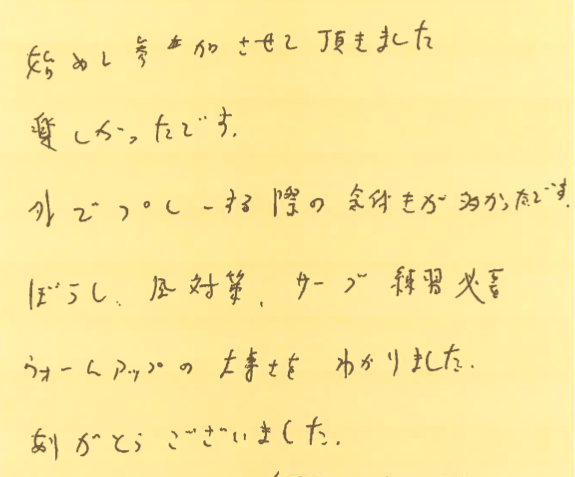 始めて参加させて頂きました
楽しかったです。
外でプレーする際の気付きが多かったです。
ぼうし、風対策、サーブ練習必要
ウォームアップの大事さを わかりました。
ありがとうございました。